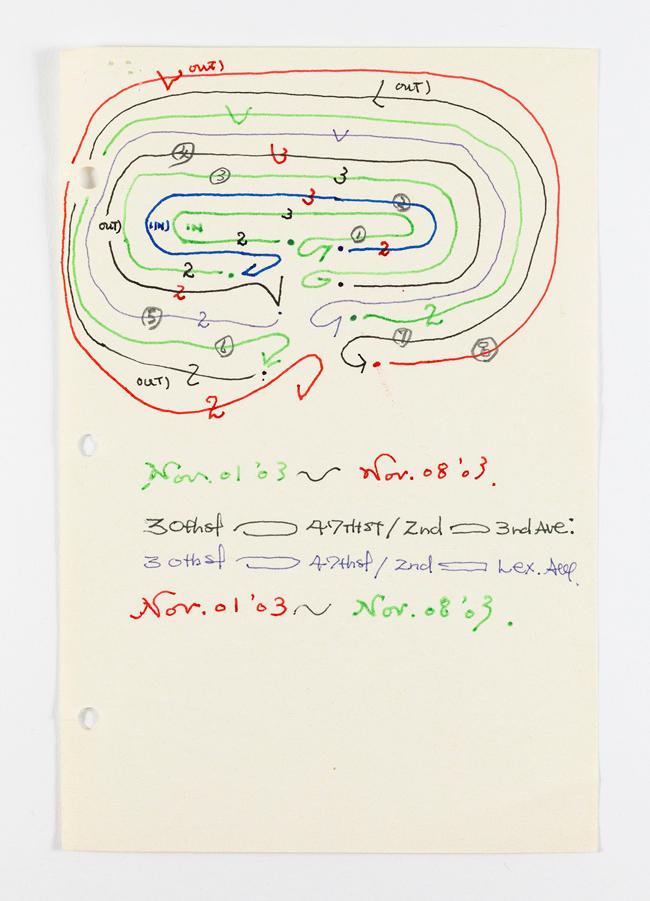 OUT)
OUT)
4
3
3
3
2
3
OUT)
(IN)
IN
2
1
2
2
2
5
2
2
6
7
8
OUT) 2
2
Nov. 01 '03 ~ Nov. 08 '03.
30thst 47THST / 2nd 3rd Ave:
30thst 47thst / 2nd Lex. Ave.
Nov. 01 '03 ~ Nov. 08 '03.